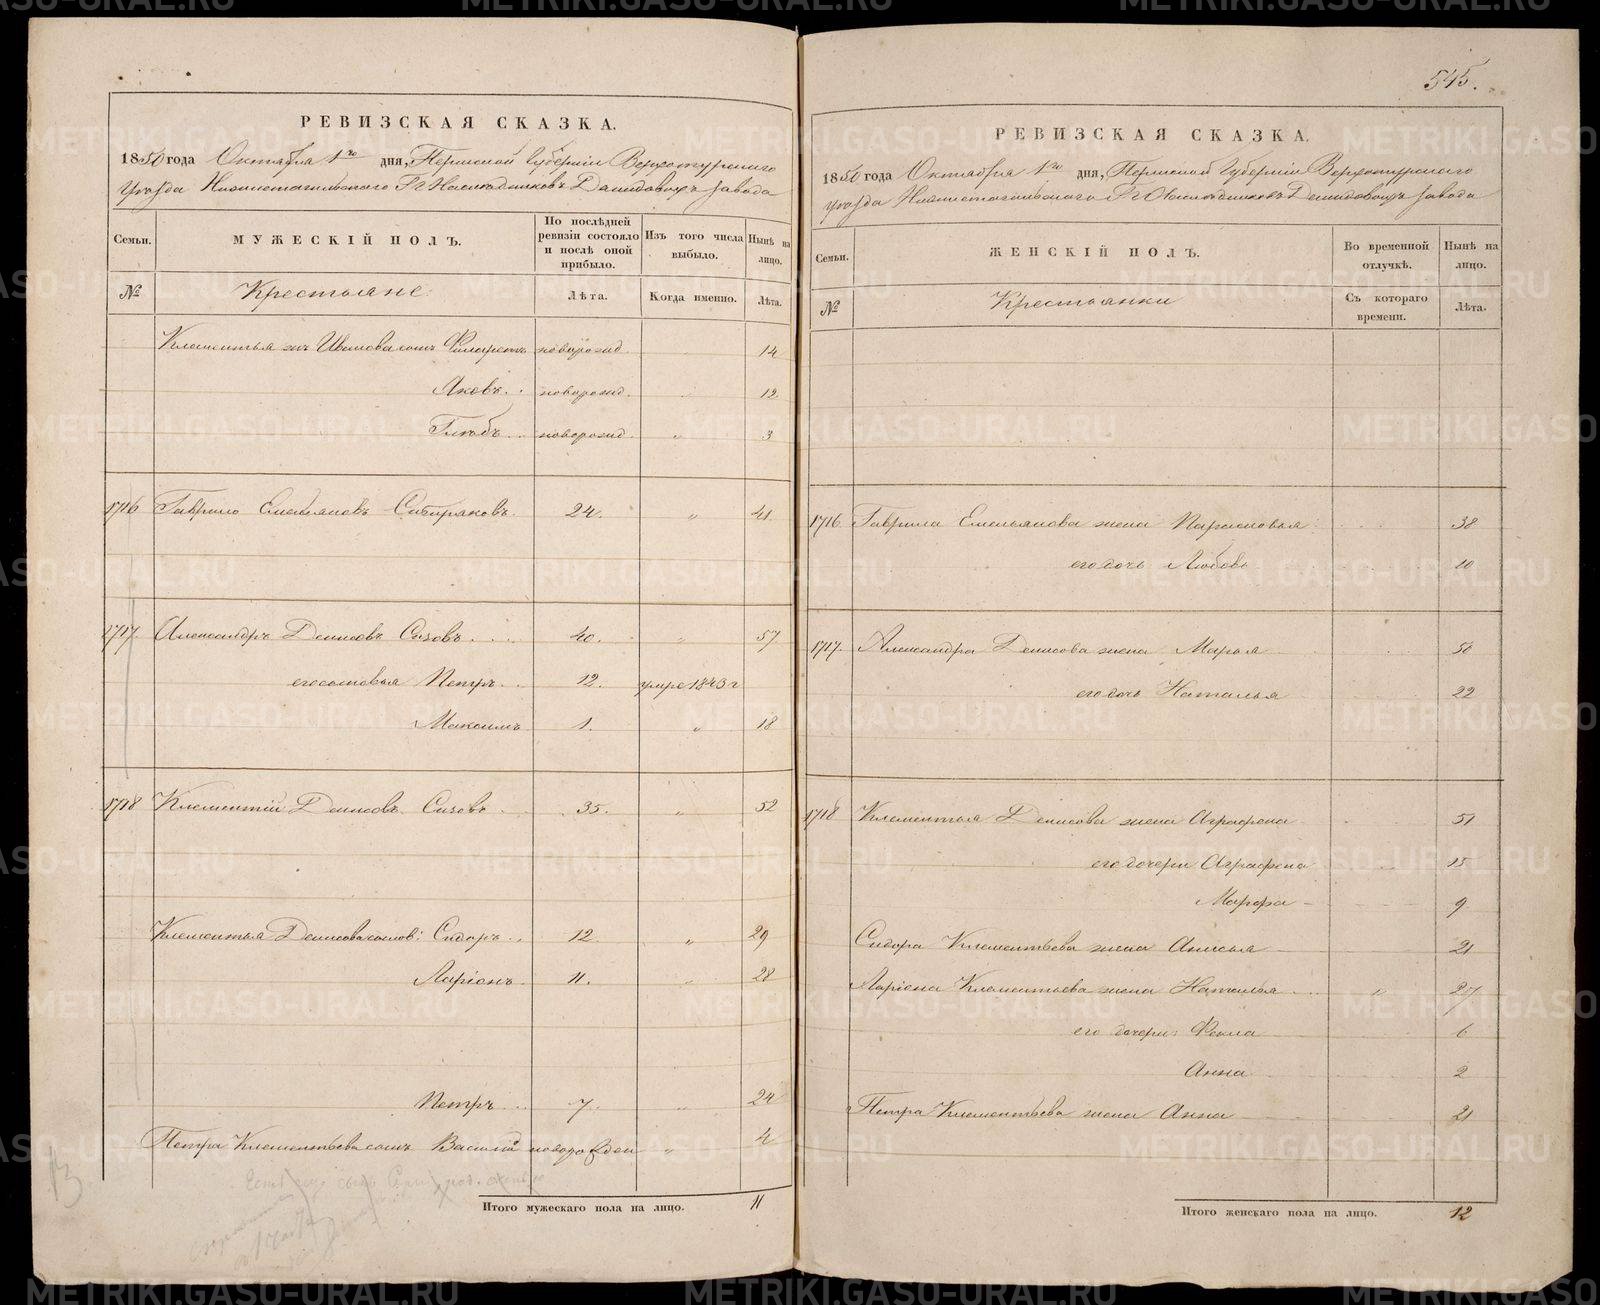 РЕВИЗСКАЯ СКАЗКА.
1850 года Октября 1го дня, Пермской Губернiи Верхотурскаго
уезда Нижнетагильскаго Гг Наследниковъ Демидовыхъ завода
Семьи.
МУЖЕСКIЙ ПОЛЪ.
По послѣдней ревизiи состояло и послѣ оной прибыло.
Изъ того числа выбыло.
Нынѣ на лицо.
№
Крестьяне
Лѣта.
Когда именно.
Лѣта.
Клементья Иванова сынъ новорожд. 14
Яковъ новорожд. " 12
Глѣбъ новорожд. " 3
1716 Гаврило Емельяновъ Сибиряковъ 24. " 41
1717. Александръ Денисовъ Сизовъ 40. " 57
его сыновья Петръ 12. умре 1843 г
Максимъ 1. " 18
1718 Клементiй Денисовъ Сизовъ 35. " 52
Клементья Денисова сынов: Сидоръ 12 " 29
Ларiонъ 11. " 28
Петръ 7. " 24
Петра Клементьева сынъ Василiй новорожден " 4
Итого мужескаго пола на лицо. 11
13
545.
РЕВИЗСКАЯ СКАЗКА.
1850 года Октября 1го дня, Пермской Губернiи Верхотурскаго
уезда Нижнетагильскаго Гг Наследниковъ Демидовыхъ завода
Семьи.
ЖЕНСКIЙ ПОЛЪ.
Во временной отлучкѣ.
Нынѣ на лицо.
№
Крестьянки
Съ котораго времени.
Лѣта.
1716 Гаврила Емельянова жена 38
его дочь Любовь 10
1717. Александра Денисова жена Марья 50
его дочь Наталья 22
1718 Клементья Денисова жена Аграфена 51
его дочери Аграфена 15
Марфа 9
Сидора Клементьева жена Анисья 21
Ларiона Клементьева жена Наталья " 27
его дочери: Фекла 6
Анна 2
Петра Клементьева жена Анна 21
Итого женскаго пола на лицо. 12
METRIKI.GASO-URAL.RU